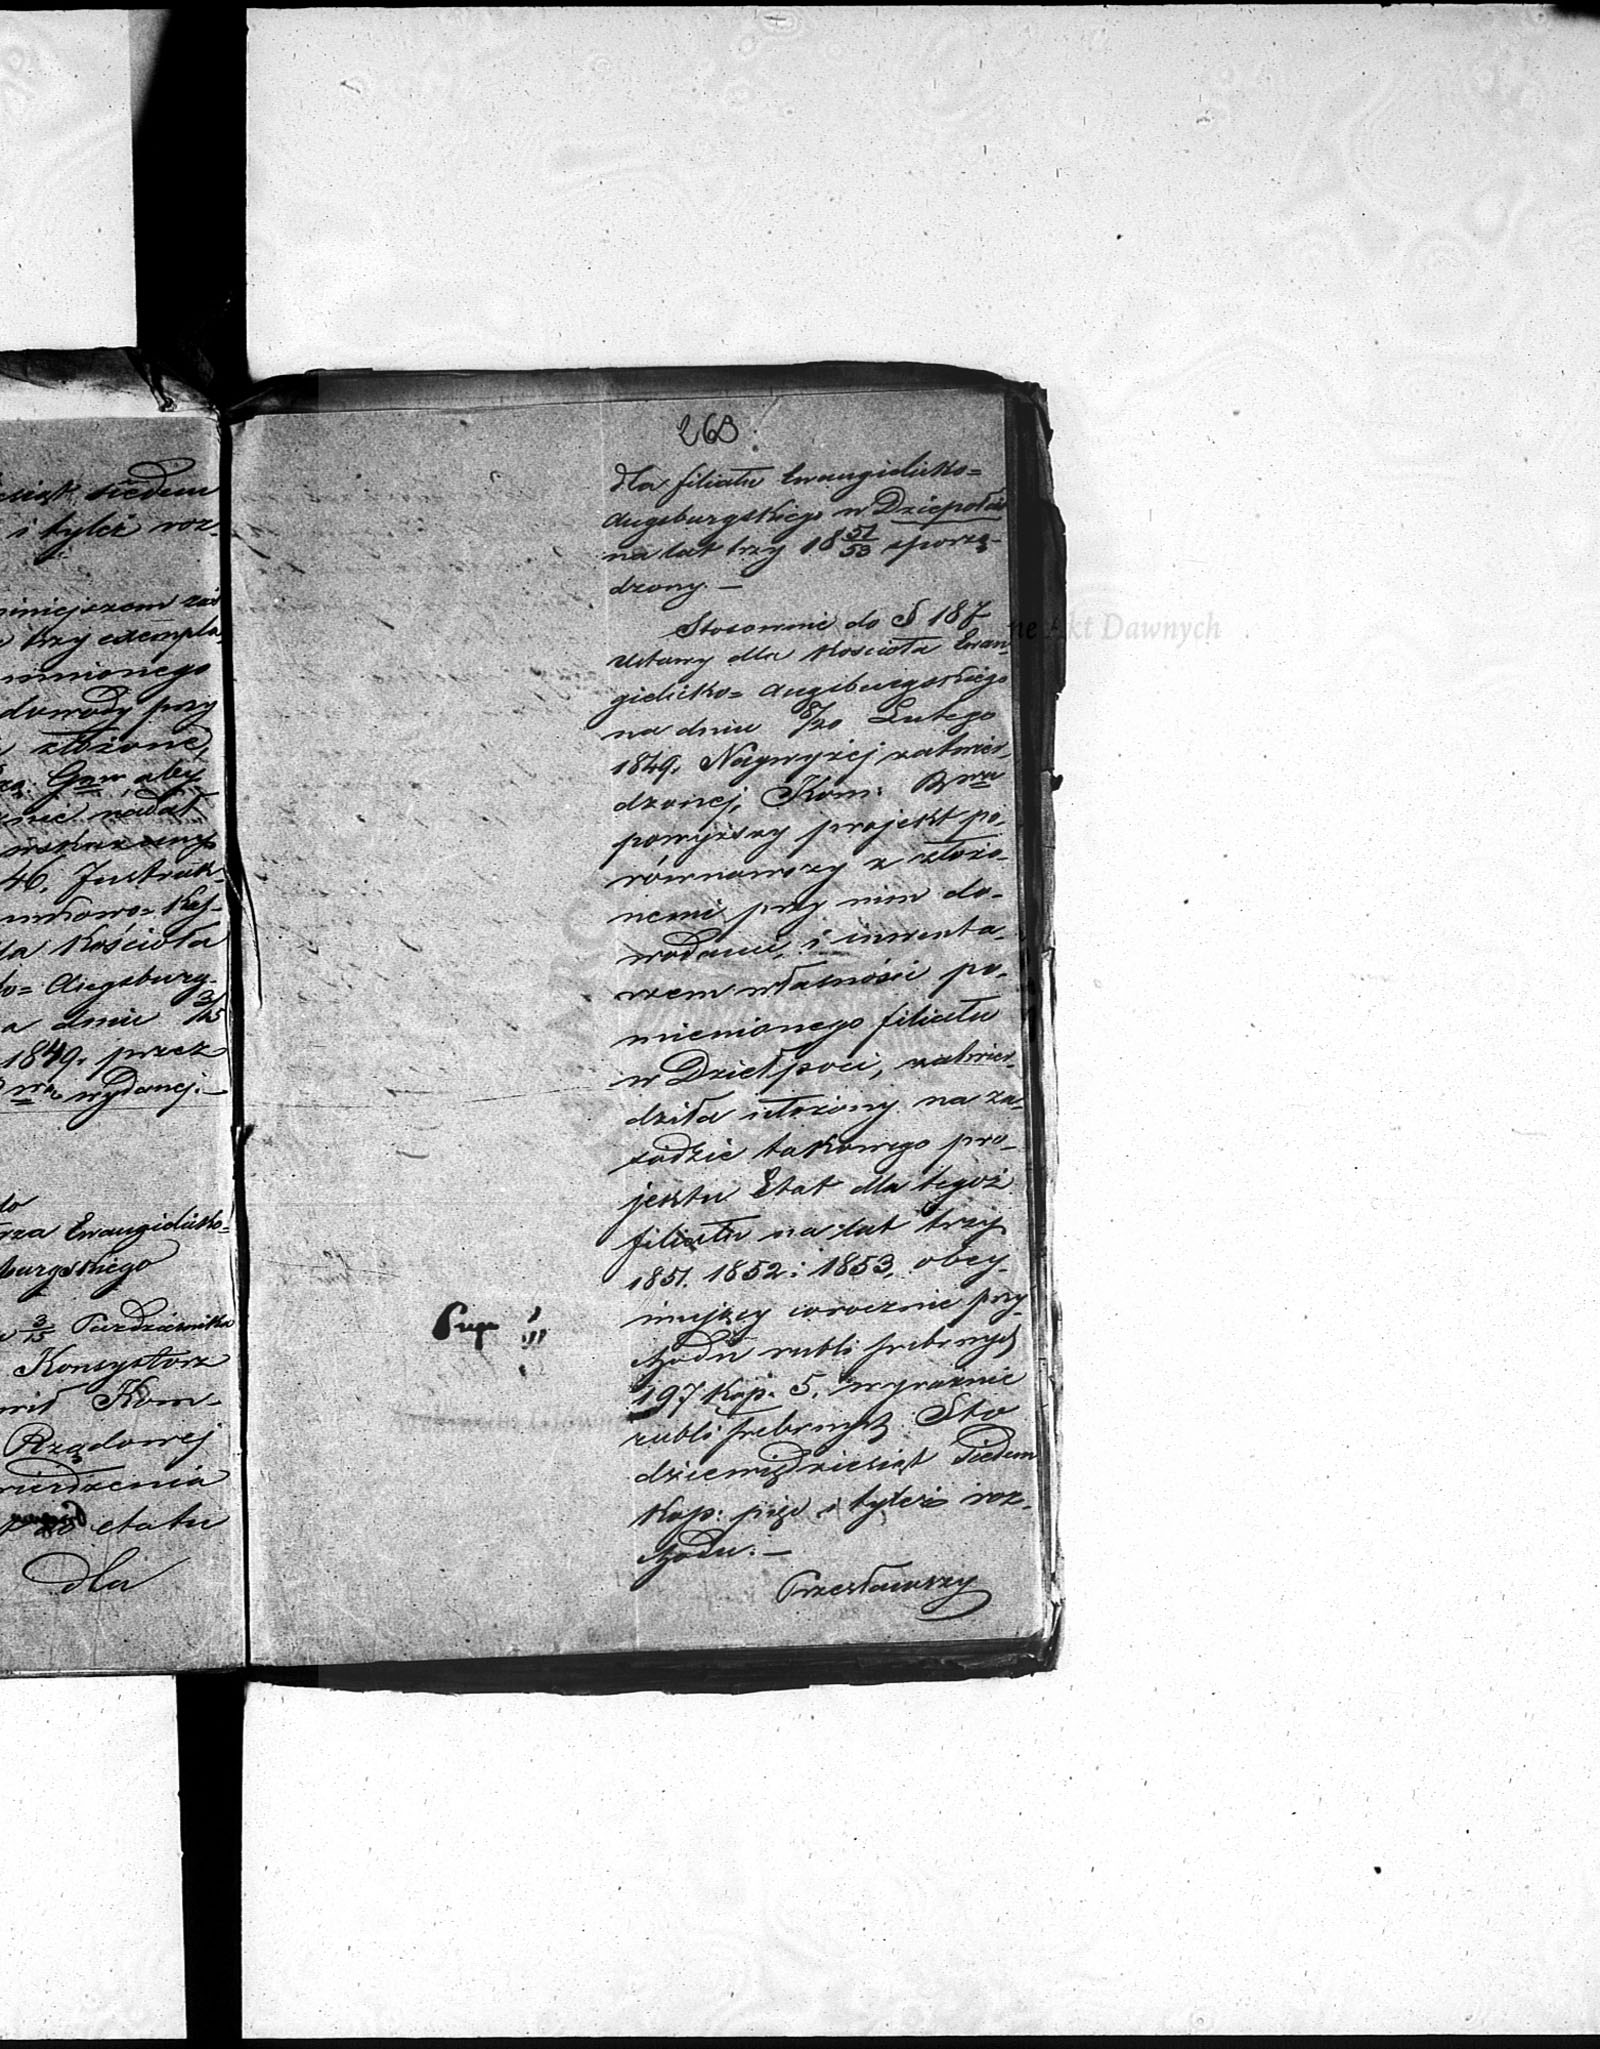 esiąt siedem
i tyleż roz-
niniejszem zaś
trzy exempla-
mnionego
dowody przy
złożone,
Gnw aby
nadał
wskazany
46, Instruk-
Kas-
la Kościoła
o= Augsburg-
a dniu 3/15
1849. przez
wydanej.—
do
rza Ewangielicko=
burgskiego
3/15 Październik
Konsystorz
Kom-
Rządowej
wierdzenia
etatu
dla
263
dla filiału Ewangielicko=
Augsburgskiego w Dziepołci
na lat trzy 18 51/53 sporzą-
dzony.—
Stosownie do § 187
Ustawy dla Kościoła Ewan-
gielicko= Augsburgskiego
na dniu 8/20 Lutego
1849, Najwyżej zatwier-
dzonej, Kom: Rwa
powyższy projekt po-
równawszy z złożo-
nemi przy nim do-
wodami, i inwenta-
rzem własności po-
mienionego filiału
w Dziełpoci, zatwier-
dziła ułożony na za-
sadzie takowego pro-
jektu Etat dla tegoż
filiału na lat trzy
1851. 1852 i 1853, obej-
mujący corocznie przy-
chodu rubli srebrnych
197 Kop. 5. wyraźnie
rubli srebrnych Sto
dziewięćdziesiąt siedem
Kop: pięć i tyleż roz-
chodu.—
Przesławszy